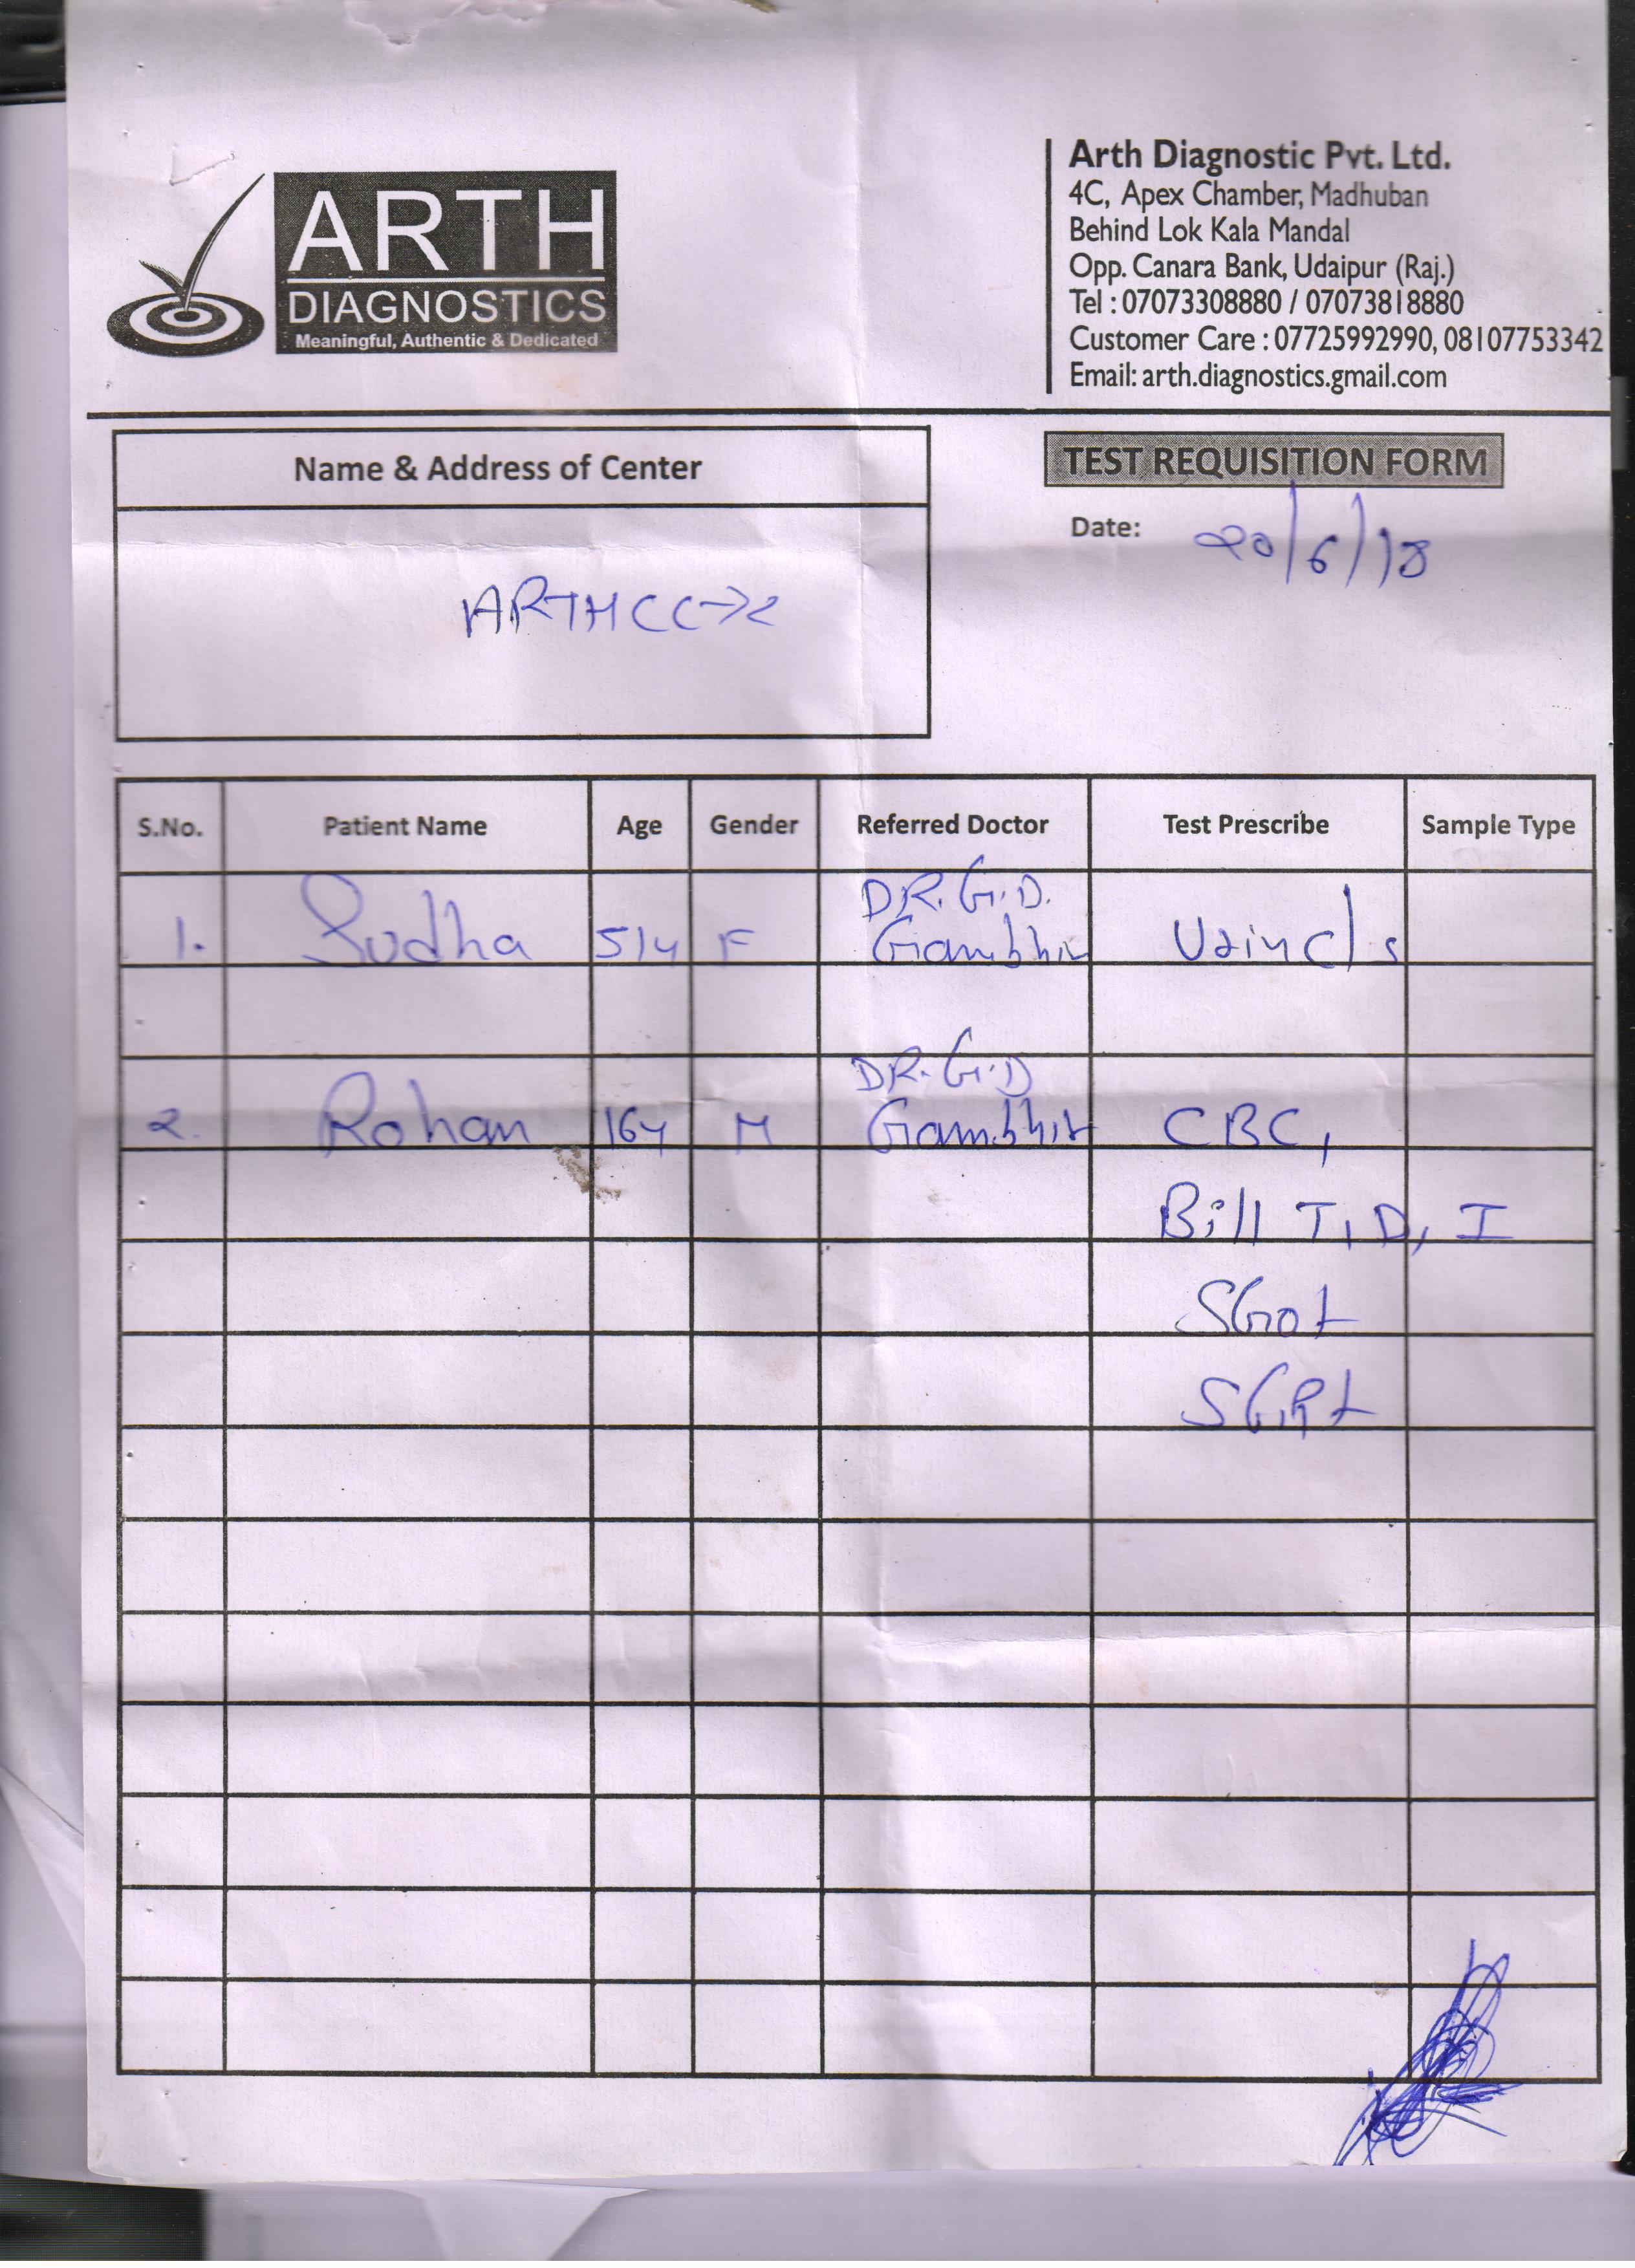 ARTH
DIAGNOSTICS
Meaningful, Authentic & Dedicated
Arth Diagnostic Pvt. Ltd.
4C, Apex Chamber, Madhuban
Behind Lok Kala Mandal
Opp. Canara Bank, Udaipur (Raj.)
Tel : 07073308880 / 07073818880
Customer Care : 07725992990, 08107753342
Email: arth.diagnostics.gmail.com
Name & Address of Center
TEST REQUISITION FORM
Date: 20/6/18
ARTH CC→2
S.No. Patient Name Age Gender Referred Doctor Test Prescribe Sample Type
DR. G.D.
1. Sudha 51y F Gambhir Urin c/s
DR. G.D
2. Rohan 16y M Gambhir CBC,
Bill T, D, I
SGot
SGPt